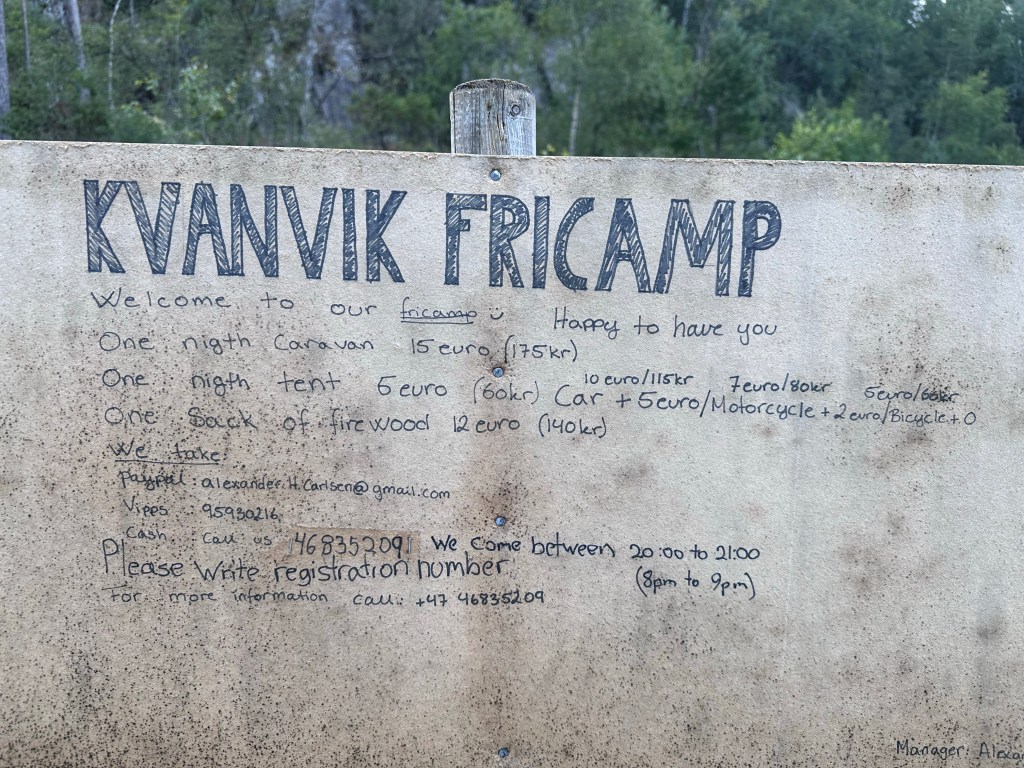 KVANVIK FRICAMP
Welcome to our fricamp Happy to have you
One nigth Caravan 15 euro (175kr)
10 euro/115kr 7euro/80kr 5euro/60kr
One nigth tent 5 euro (60kr) Car + 5euro/Motorcycle + 2 euro/Bicycle + 0
One Sack of firewood 12 euro (140kr)
We take:
Paypal: alexander.H.Carlsen@gmail.com
Vipps: 95930216
Cash: call us 46835209 We come between 20:00 to 21:00
(8pm to 9pm)
Please write registration number
For more information call: +47 46835209
Manager: